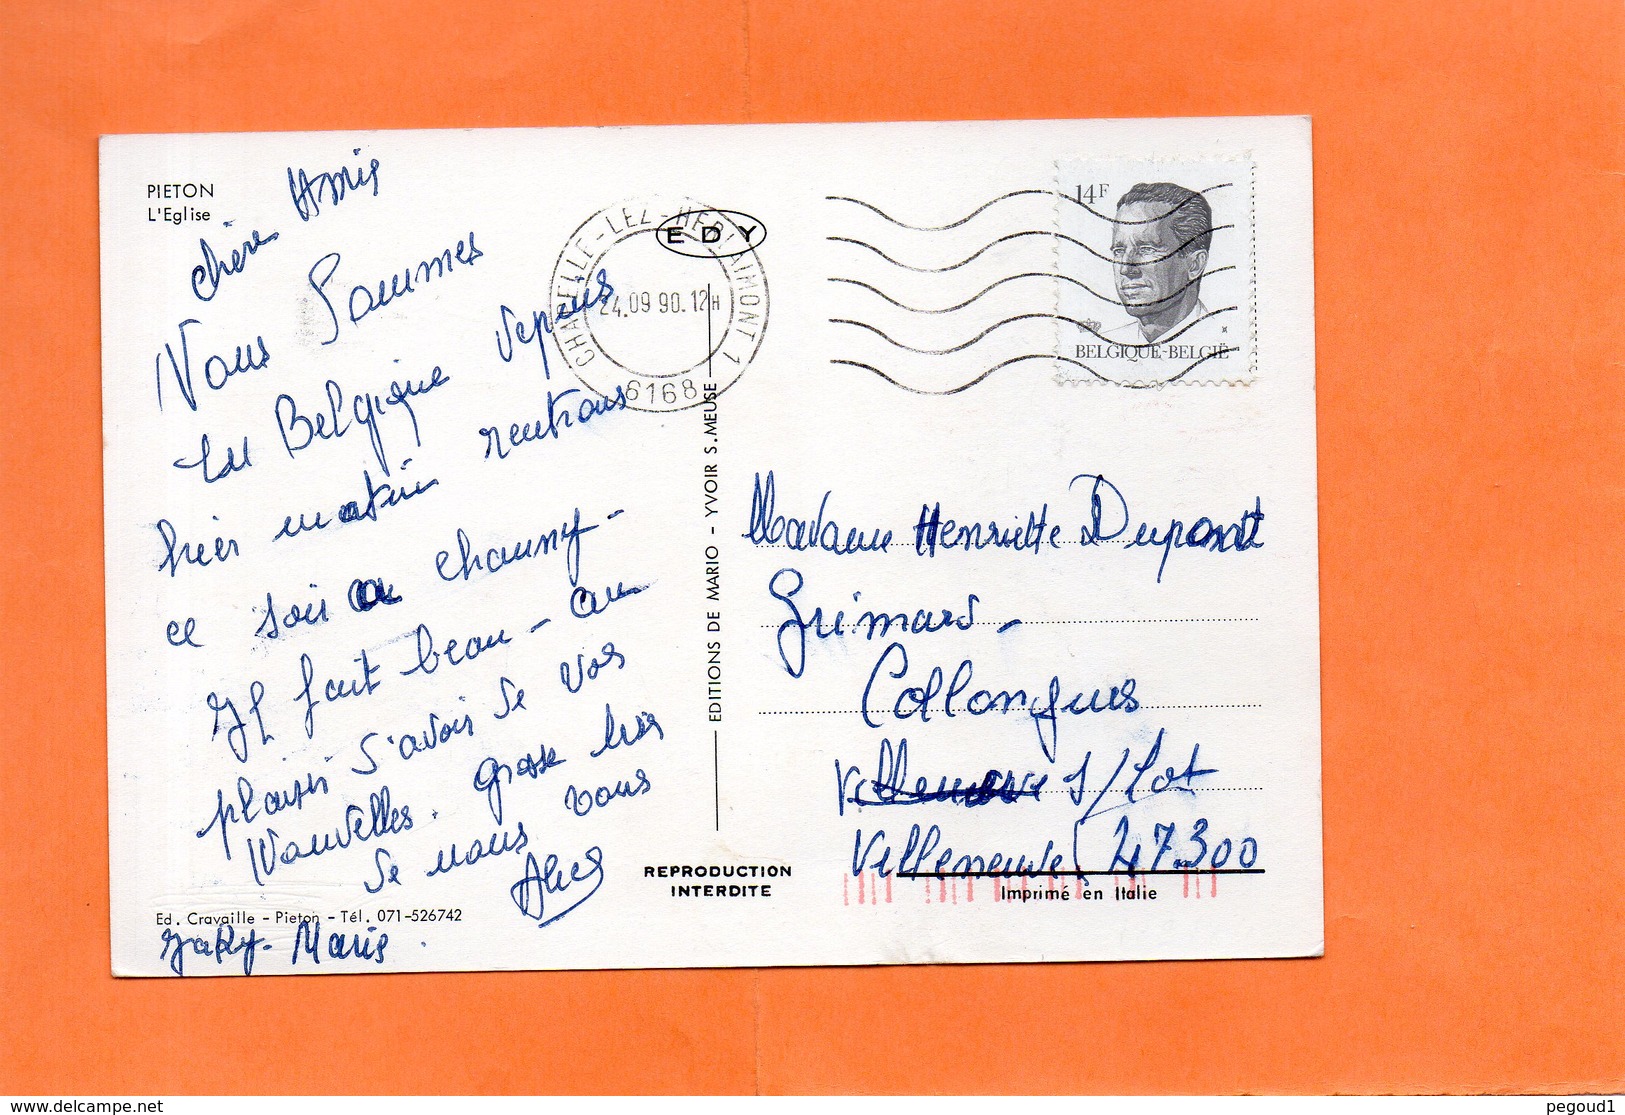 PIETON
L'Eglise
chère Amie
Nous Sommes
en Belgique depuis
hier matin rentrons
ce soir a chauny-
Il fait beau - au
plaisir d'avoir de vos
Nouvelles. grosse bise
de nous vous
Alice
Jaky-Marie.
Ed. Cravaille - Pieton - Tél. 071-526742
CHAPELLE-LEZ-HERLAIMONT 1
24.09 90.12H
6168
EDY
EDITIONS DE MARIO - YVOIR S.MEUSE
REPRODUCTION
INTERDITE
14F
BELGIQUE-BELGIË
Madame Henriette Dupont
Grimard-
Collongues
Villeneuve S/Lot
Villeneuve 47.300
Imprimé en Italie
pegoud1